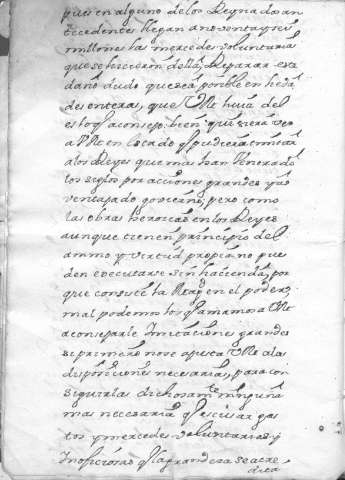 pues en alguno de los Reynados an
tecedentes llegan a noventa y seis
millones las mercedes voluntarias
que se hicieron della, Reparar esse
daño dudo que sea posible en heda
des enteras, que VM huia del
es lo q aconsejo bien quisiera ver
a VM en estado q pudiera imitar
a los Reyes que mas han venerado
los siglos por acciones grandes y a
ventajado govierno; pero como
las obras heroicas en los Reyes
aunque tienen principio del
animo y virtud propia no pue
den executarse sin hacienda, por
que consiste la Magd en el poder,
mal podemos los q amamos a VM
aconsejarle Imitaciones grandes
si primero no se ajusta VM a las
disposiciones necesarias, para con
seguirlas dichosamte ninguna
mas necesaria q escusar gas
tos y mercedes voluntarias, y
Inoficiosas q la grandeza se acre
dita